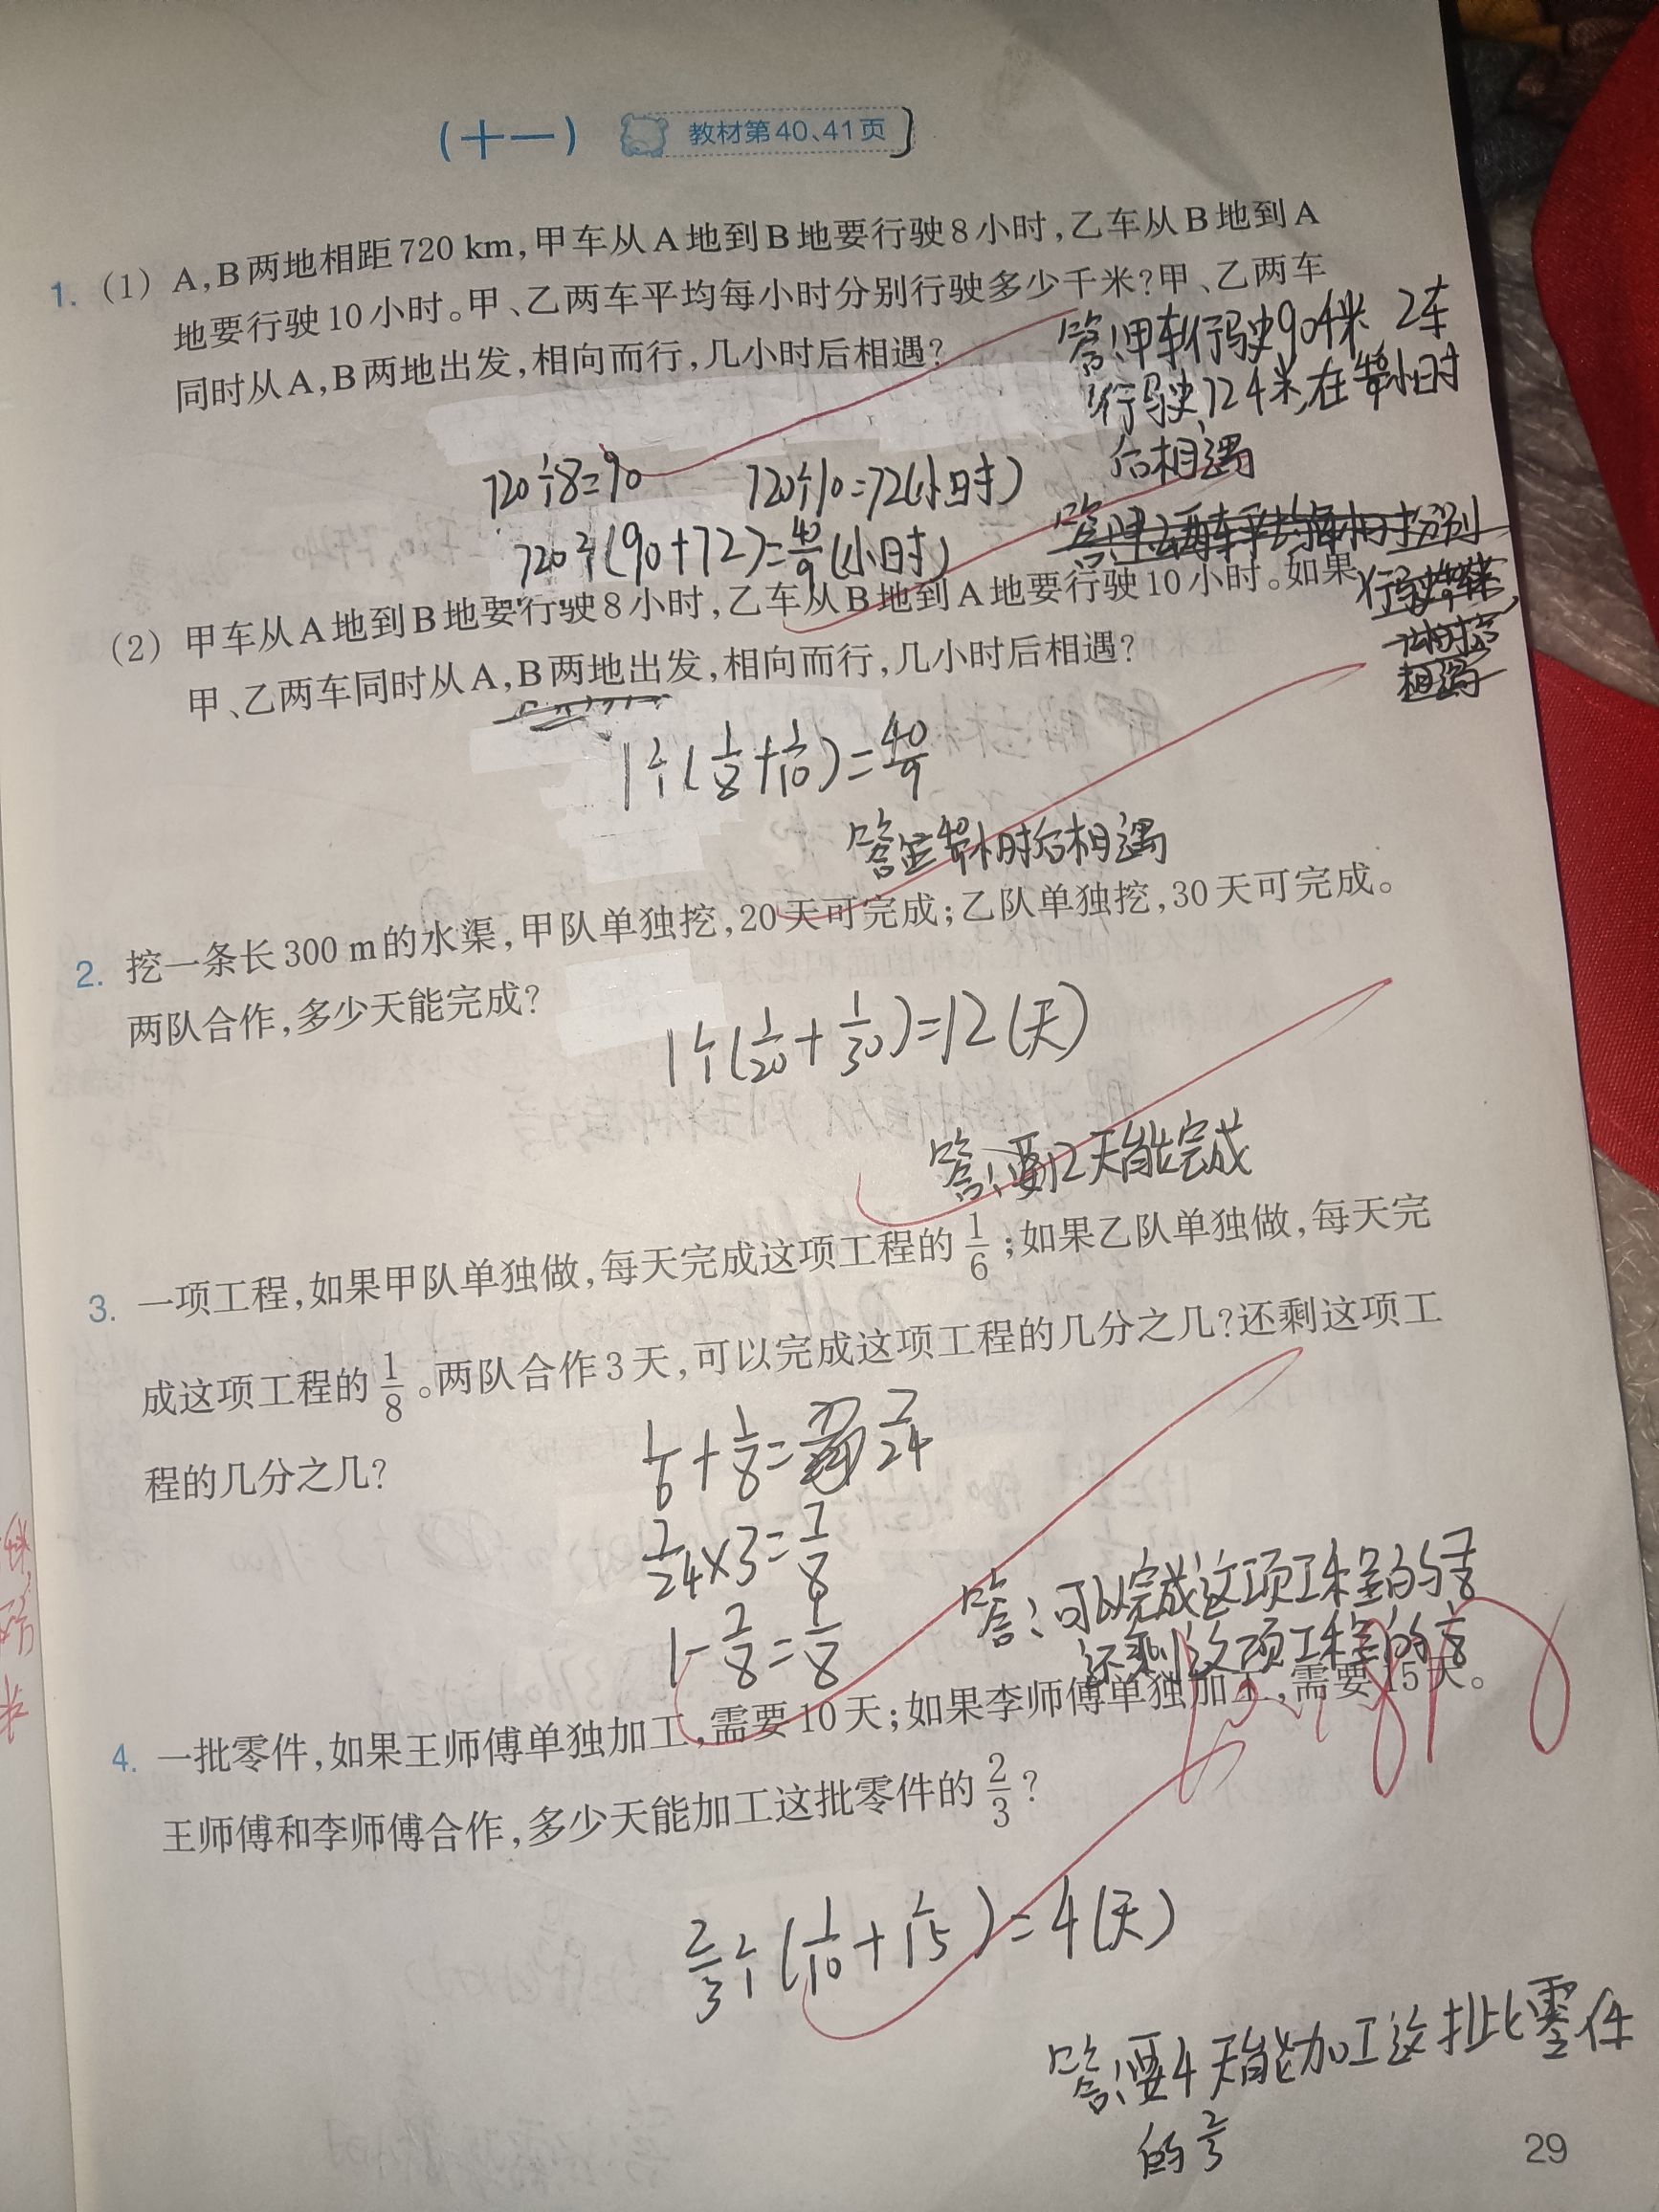 （十一） 教材第40、41页
1. (1) A,B两地相距720 km,甲车从A地到B地要行驶8小时,乙车从B地到A
地要行驶10小时。甲、乙两车平均每小时分别行驶多少千米?甲、乙两车
同时从A,B两地出发,相向而行,几小时后相遇?
答:甲车行驶90千米 乙车
行驶72千米,在40/9小时
后相遇
720÷8=90 720÷10=72(小时)
720÷(90+72)=40/9(小时)
(2) 甲车从A地到B地要行驶8小时,乙车从B地到A地要行驶10小时。如果
甲、乙两车同时从A,B两地出发,相向而行,几小时后相遇?
1÷(1/8+1/10)=40/9
答:在40/9小时后相遇
2. 挖一条长300 m的水渠,甲队单独挖,20天可完成;乙队单独挖,30天可完成。
两队合作,多少天能完成?
1÷(1/20+1/30)=12(天)
答:要12天能完成
3. 一项工程,如果甲队单独做,每天完成这项工程的1/6;如果乙队单独做,每天完
成这项工程的1/8。两队合作3天,可以完成这项工程的几分之几?还剩这项工
程的几分之几?
1/6+1/8=7/24
7/24×3=7/8
1-7/8=1/8
答:可以完成这项工程的7/8
还剩这项工程的1/8
4. 一批零件,如果王师傅单独加工,需要10天;如果李师傅单独加工,需要15天。
王师傅和李师傅合作,多少天能加工这批零件的2/3?
2/3÷(1/10+1/15)=4(天)
答:要4天能加工这批零件
的2/3
29